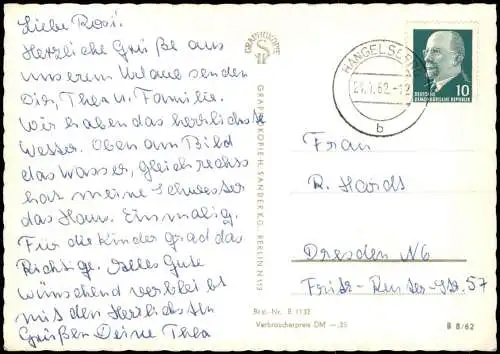 Liebe Rosi!
Herzliche Grüße aus
unserem Urlaub senden
Dir, Thea u. Familie.
Wir haben das herrlichste
Wetter. Oben am Bild
das Wasser, gleich rechts
hat meine Schwester
das Haus. Einmalig.
Für die Kinder grad das
Richtige. Alles Gute
wünschend verbleibt
mit den herzlichsten
Grüßen Deine Thea
GRAPHOKOPIE
GRAPHOKOPIE H. SANDER K.G., BERLIN N 113
HANGELSBERG
-12
b
10
DEUTSCHE
DEMOKRATISCHE REPUBLIK
Frau
R. Hardt
Dresden N6
Fritz-Reuter-Str. 57
Best.-Nr. B 1132
Verbraucherpreis DM —,25
B 8/62